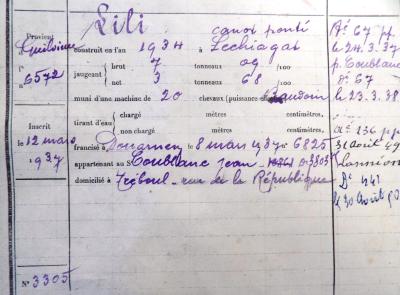 Lili
canot ponté
Provient
Guilvinec
n° 6572
construit en l'an 1934 à Lechiagat
jaugeant
brut 7 tonneaux 09 /100
net 3 tonneaux 68 /100
muni d'une machine de 20 chevaux (puissance Baudoin
tirant d'eau
chargé mètres centimètres,
non chargé mètres centimètres.
Inscrit
le 12 mars
1937
francisé à Douarnenez le 8 mars 1937 n° 6825
appartenant au Sr Coublanc Jean 3805
domicilié à Tréboul - rue de la République
N° 3305
Ac 67 pp
le 24.3.37
p. Coublanc
Do 67
le 23.3.38
ac 136 pp
31 août 49
Lannion
Do 241
le 30 août 50